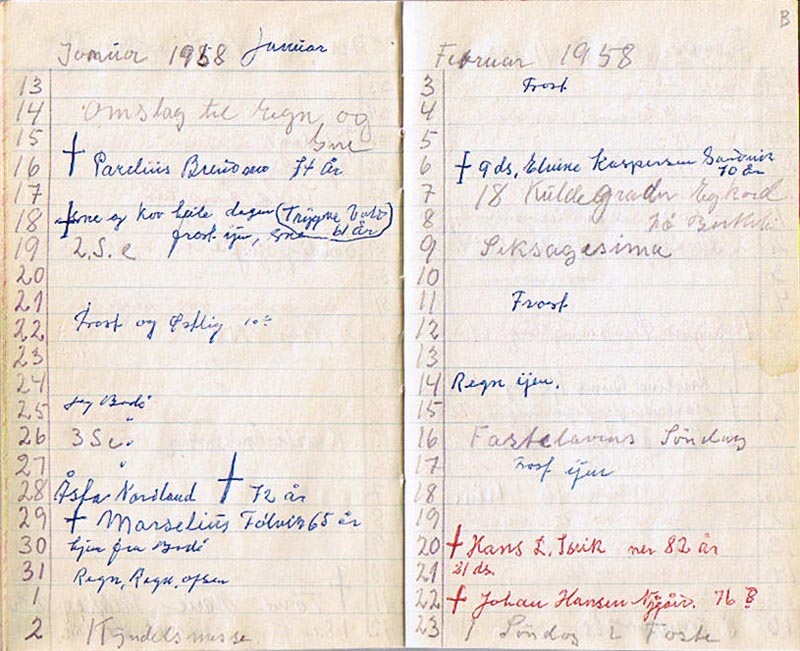 Januar 1958 Januar
13
14 Omslag til regn og
15 Sne
16 † Parelius 74 år
17
18 hele dagen (Trygve
19 2. S. e frost ijen, 61 år)
20
21
22 Frost og Østlig
23
24
25 jeg Bodø
26 3 S e
27
28 Åsta Nordland † 72 år
29 † Marselius 65 år
30 hjem fra Bodø
31 Regn, Regn,
1
2 Kyndelsmesse
B
Februar 1958
3 Frost
4
5
6 † 9 ds, Elvine Kaspersen Sandvik
70 år
7 18 Kulde grader
8
9 Seksagesima
10
11 Frost
12
13
14 Regn ijen.
15
16 Fastelavens Søndag
17 Frost ijen
18
19
20 † Hans L. 82 år
21 21 ds.
22 † Johan Hansen 76 B
23 1 Søndag i Faste